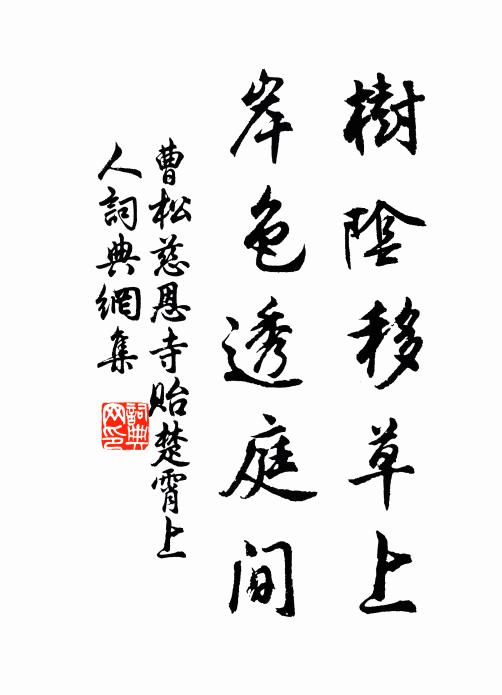 樹陰移草上
岸色透庭間
曹松慈恩寺貽楚霄上
人詞典網集
詞典
网印